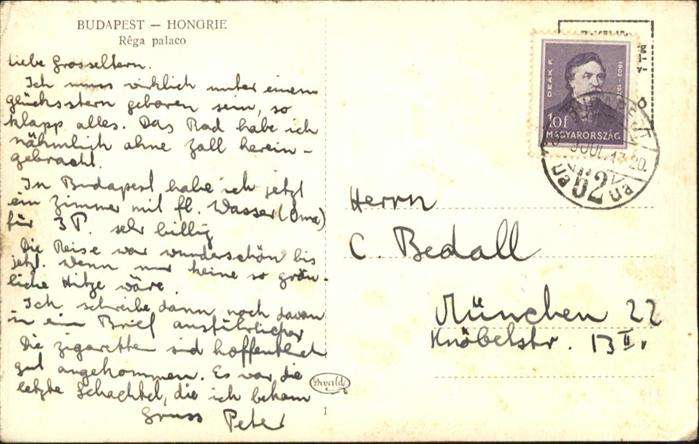 BUDAPEST — HONGRIE
Rêga palaco
Liebe Grosseltern.
Ich muss wirklich unter einem
glücksstern geboren sein, so
klapp alles. Das Rad habe ich
nähmlich ohne Zoll herein-
gebracht.
In Budapest habe ich jetzt
ein Zimmer mit fl. Wasser (Oma)
für 3P. sehr billig
Die Reise war wunderschön bis
jetzt. Wenn nur keine so gräu-
liche Hitze wäre.
Ich schreibe dann noch davon
in ein Brief ausführlicher
Die Zigaretten sind hoffentlich
gut angekommen. Es war die
letzte Schachtel, die ich bekam
Gruss Peter
DEÁK F.
1803-1876
10f
MAGYARORSZÁG
62
Herrn
C. Bedall
München 22
Knöbelstr. 13 II.
1